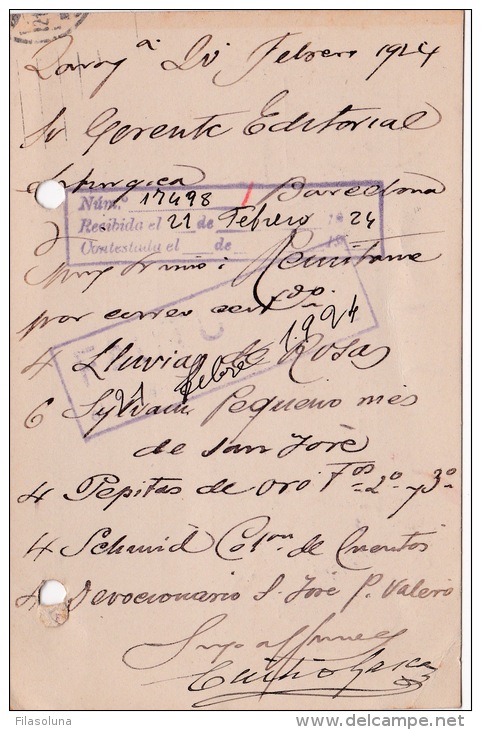 Febrero 1924
Sr Gerente Editorial
Liturgica Barcelona
Núm.º 17498
Recibida el 21 de Febrero 1924
Contestada el de 19
Muy Sr mio: Remitame
por correo certdo.
4 Lluvias de Rosas
21 Febre 1924
6 Pequeno mes
de San José
4 Pepitas de oro Tos 2º y 3º
4 Schmid Coton de Cuentos
4 Devocionario S. José P. Valero
Suyo affmo
Filasoluna
http://www.delcampe.net